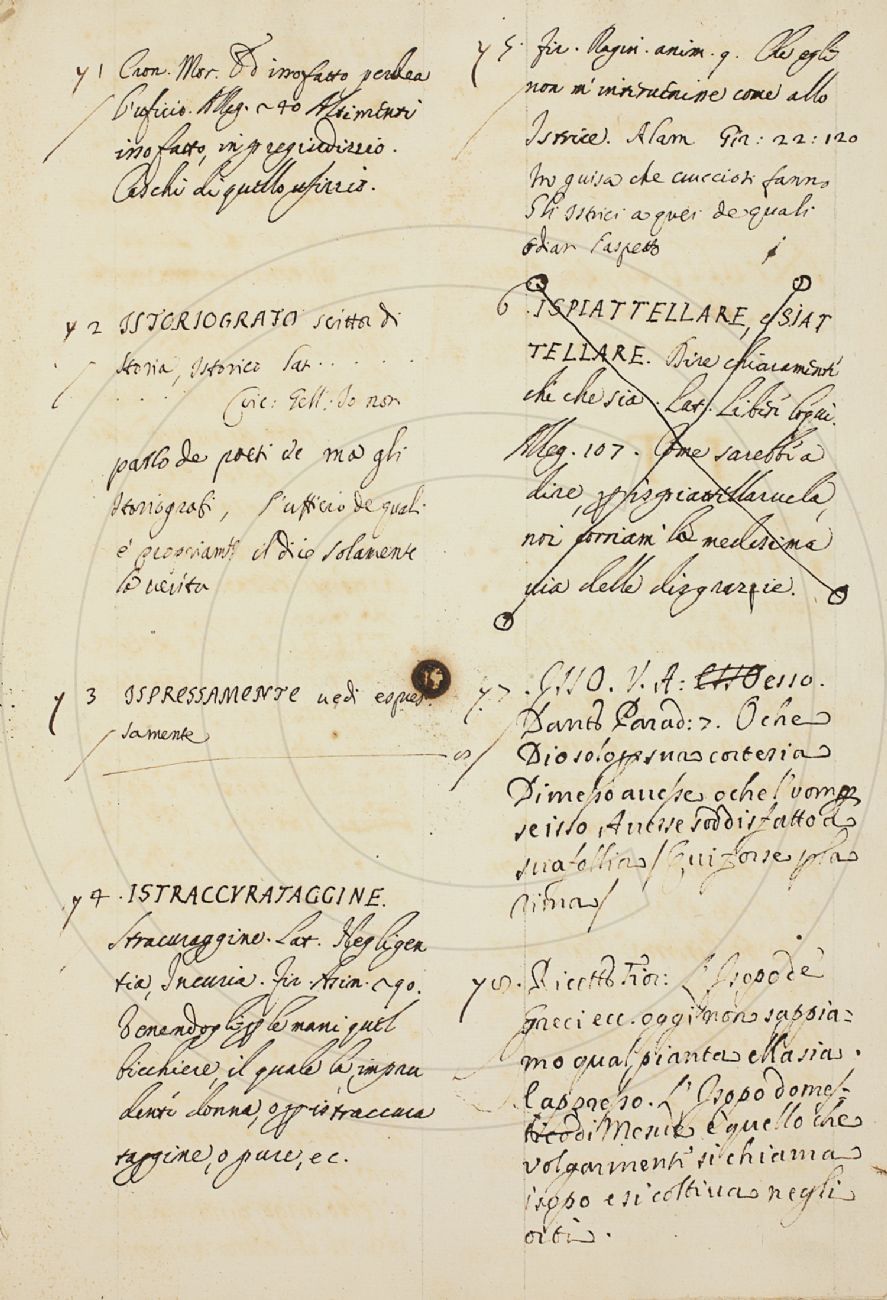 1 Cron. Mor. Ed issofatto perdea
l'uficio. Alleg. 240 Altrimenti
issofatto, in pregiudizzio.
Caschi di quello ufizzio.
2 ISTORIOGRAFO scrittor di
Storia, Istorico Lat. . . . . .
. . . . . Circ: Gell. Io non
parlo de poeti ve ma gli
Istoriografi, l'ufficio de quali
è propriam.te il dire solamente
la verità
3 ISPRESSAMENTE vedi espres
samente
4 . ISTRACCVRATAGGINE.
Stracuraggine. Lat. Negligen
tia, Incuria. Fir. Asin. 290.
Tenendogli le mani quel
bicchiere, il quale la impru
dente donna, o p istraccura
taggine, o pure, ec.
5. fir. Ragin. anim. 9. Che egli
non m'intervenisse come allo
Istrice. Alam Gir: 22: 120
In guisa che cucciosi fanno
Gli Istrici a quei de quali
odian l'aspetto
6 . ISPIATTELLARE, e SPIAT
TELLARE. Dire chiaramente
che che sia. Lat. Liberè loqui.
Alleg. 107. Come sarebbe a
dire, p ispiattellarvela,
noi corriam' la medesima
via delle disgrazzie.
7. ISSO. V. A: esso.
Dante Parad: 7. O che
Dio solo p sua cortesia
Dimesso avesse, o che l'uom p
se isso, Avesse soddisfatto a
sua follia / Qui forse p la
rima /
8. Ricett. Fior: L'Isopo de'
Greci ecc. oggi non sappia=
mo qual pianta ella sia.
e appresso. L'Isopo domes-
tico di Mesue è quello che
volgarmente si chiama
isopo e si coltiva negli
orti.